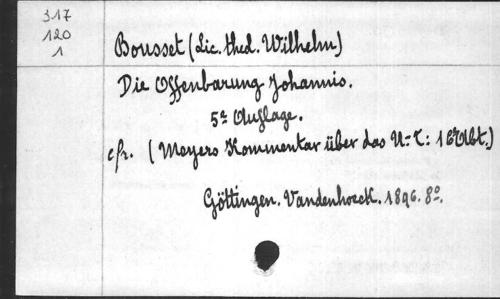 317
120
1
Bousset (Lic. theol. Wilhelm)
Die Offenbarung Johannis.
5e Auflage.
cfr. (Meyers Kommentar über das N-T: 16 Abt.)
Göttingen. Vandenhoeck. 1896. 8º.